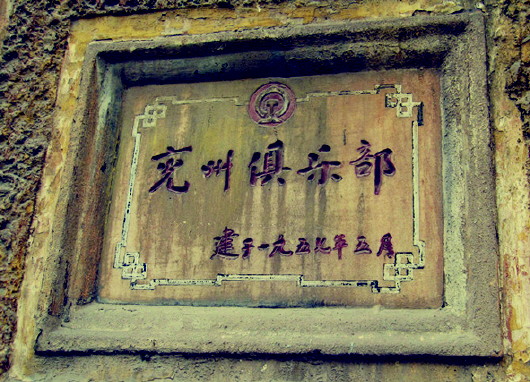 兖州俱乐部
建于一九五七年五月